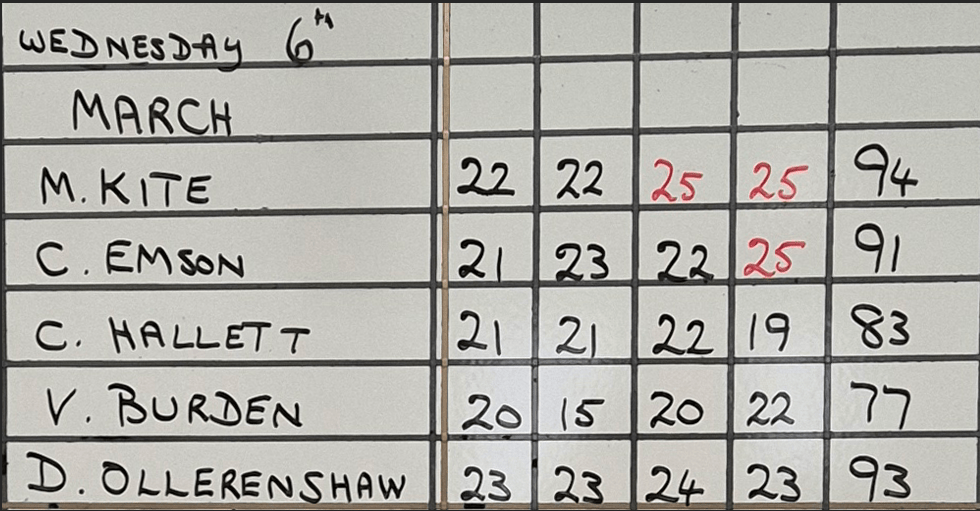 WEDNESDAY 6th
MARCH
M. KITE 22 22 25 25 94
C. EMSON 21 23 22 25 91
C. HALLETT 21 21 22 19 83
V. BURDEN 20 15 20 22 77
D. OLLERENSHAW 23 23 24 23 93